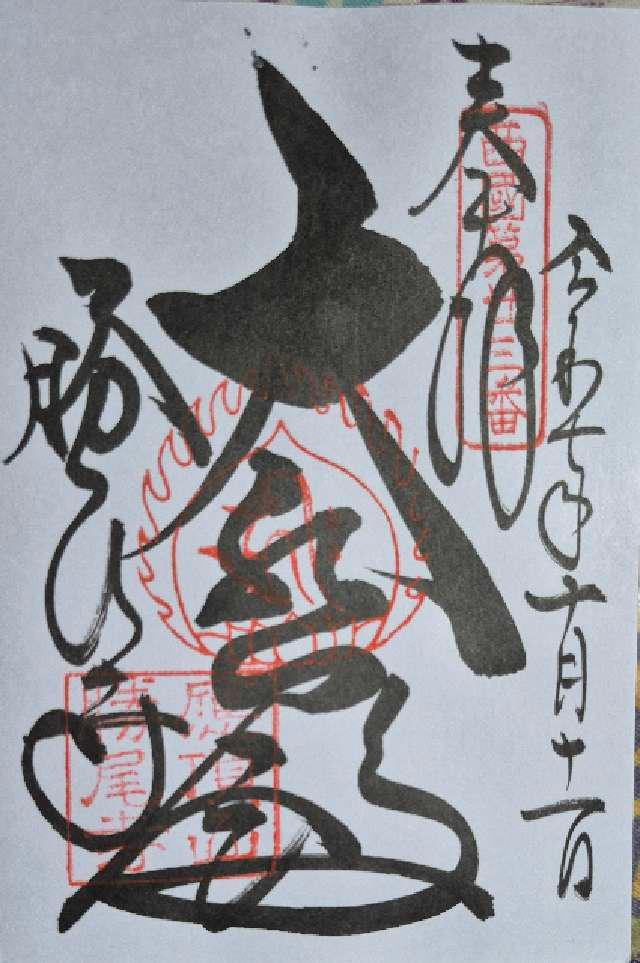 奉拝
西國第廿三番
令和七年十月十一日
大悲殿
勝尾寺
應頂山
勝尾寺